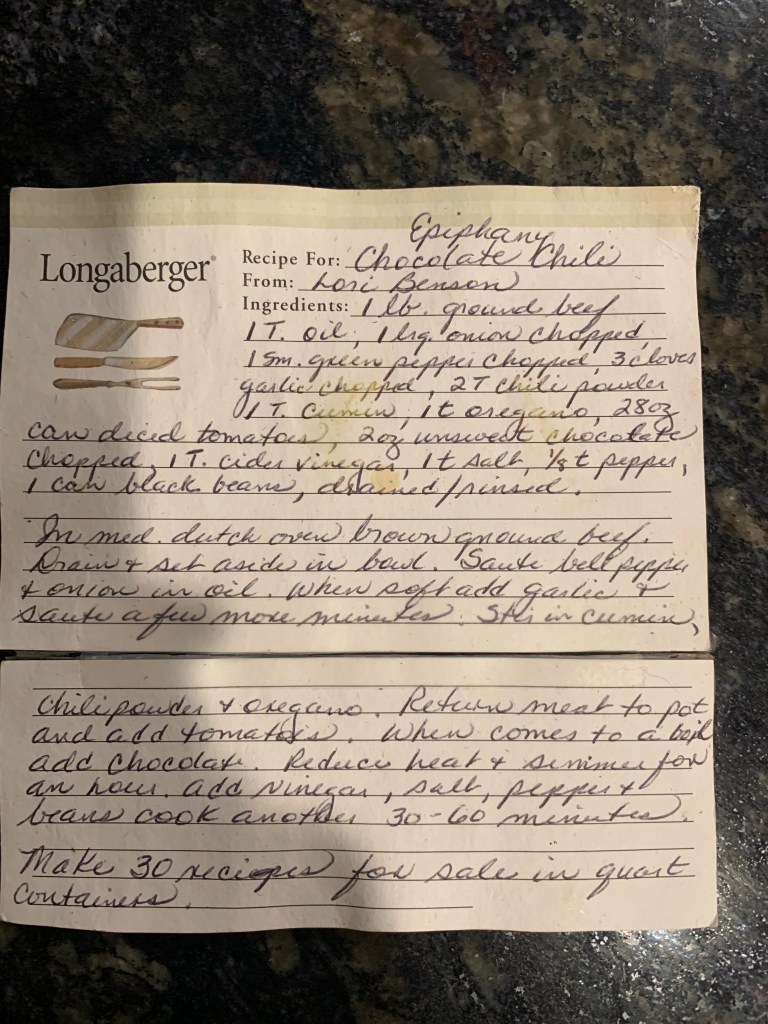 Epiphany
Longaberger®
Recipe For: Chocolate Chili
From: Lori Benson
Ingredients: 1 lb. ground beef
1 T. oil, 1 lrg. onion chopped,
1 sm. green pepper chopped, 3 cloves
garlic chopped, 2 T chili powder
1 T. cumin, 1 t oregano, 28 oz
can diced tomatoes, 2 oz unsweet chocolate
chopped, 1 T. cider vinegar, 1 t salt, 1/8 t pepper,
1 can black beans, drained/rinsed.
In med. dutch oven brown ground beef.
Drain + set aside in bowl. Saute bell pepper
+ onion in oil. When soft add garlic +
saute a few more minutes. Stir in cumin,
chili powder + oregano. Return meat to pot
and add tomatoes. When comes to a boil
add chocolate. Reduce heat + simmer for
an hour. add vinegar, salt, pepper +
beans cook another 30-60 minutes.
Make 30 recipes for sale in quart
containers.